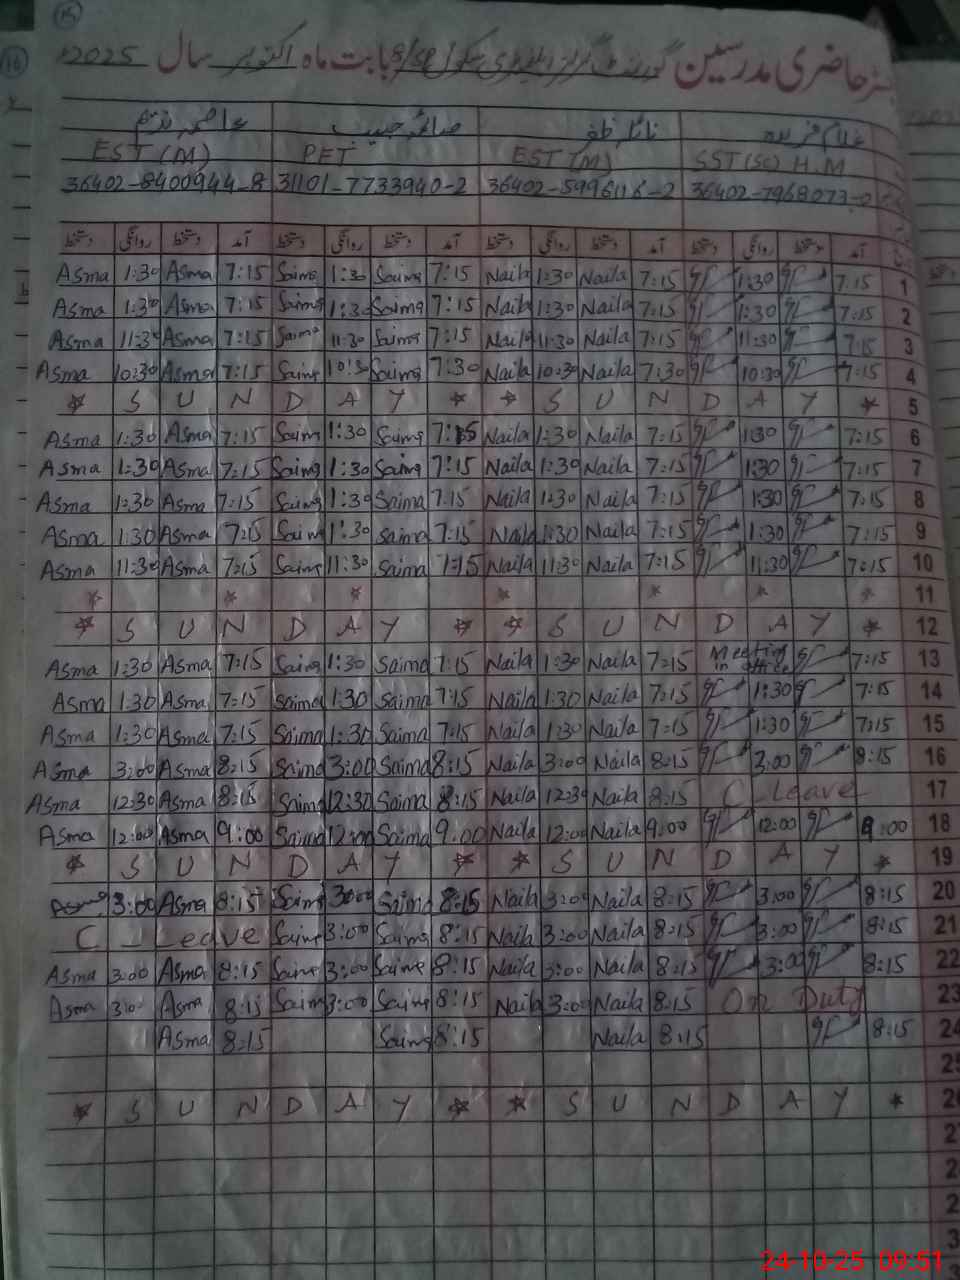 15
16
حاضری مدرسین گورنمنٹ گرلز ایلیمنٹری سکول بابت ماہ اکتوبر سال 2025
عاصمہ صائمہ حبیب نائلہ ظفر غلام
EST (M) PET EST (M) SST (SC) H.M
36402-8400944-8 31101-7733940-2 36402-5996116-2 36402-7968073-
آمد دستخط روانگی دستخط آمد دستخط روانگی دستخط آمد دستخط روانگی دستخط آمد دستخط روانگی دستخط
Asma 1:30 Asma 7:15 Saima 1:30 Saima 7:15 Naila 1:30 Naila 7:15 1:30 7:15 1
Asma 1:30 Asma 7:15 Saima 1:30 Saima 7:15 Naila 1:30 Naila 7:15 1:30 7:15 2
Asma 11:30 Asma 7:15 Saima 11:30 Saima 7:15 Naila 11:30 Naila 7:15 11:30 7:15 3
Asma 10:30 Asma 7:15 Saima 10:30 Saima 7:30 Naila 10:30 Naila 7:30 10:30 7:15 4
* S U N D A Y * * S U N D A Y * 5
Asma 1:30 Asma 7:15 Saima 1:30 Saima 7:15 Naila 1:30 Naila 7:15 1:30 7:15 6
Asma 1:30 Asma 7:15 Saima 1:30 Saima 7:15 Naila 1:30 Naila 7:15 1:30 7:15 7
Asma 1:30 Asma 7:15 Saima 1:30 Saima 7:15 Naila 1:30 Naila 7:15 1:30 7:15 8
Asma 1:30 Asma 7:15 Saima 1:30 Saima 7:15 Naila 1:30 Naila 7:15 1:30 7:15 9
Asma 11:30 Asma 7:15 Saima 11:30 Saima 7:15 Naila 11:30 Naila 7:15 11:30 7:15 10
* * * * * * * 11
* S U N D A Y * * S U N D A Y * 12
Asma 1:30 Asma 7:15 Saima 1:30 Saima 7:15 Naila 1:30 Naila 7:15 Meeting in office 7:15 13
Asma 1:30 Asma 7:15 Saima 1:30 Saima 7:15 Naila 1:30 Naila 7:15 1:30 7:15 14
Asma 1:30 Asma 7:15 Saima 1:30 Saima 7:15 Naila 1:30 Naila 7:15 1:30 7:15 15
Asma 3:00 Asma 8:15 Saima 3:00 Saima 8:15 Naila 3:00 Naila 8:15 3:00 8:15 16
Asma 12:30 Asma 8:15 Saima 12:30 Saima 8:15 Naila 12:30 Naila 8:15 C-Leave 17
Asma 12:00 Asma 9:00 Saima 12:00 Saima 9:00 Naila 12:00 Naila 9:00 12:00 9:00 18
* S U N D A Y * * S U N D A Y * 19
Asma 3:00 Asma 8:15 Saima 3:00 Saima 8:15 Naila 3:00 Naila 8:15 3:00 8:15 20
C - Leave Saima 3:00 Saima 8:15 Naila 3:00 Naila 8:15 3:00 8:15 21
Asma 3:00 Asma 8:15 Saima 3:00 Saima 8:15 Naila 3:00 Naila 8:15 3:00 8:15 22
Asma 3:00 Asma 8:15 Saima 3:00 Saima 8:15 Naila 3:00 Naila 8:15 On Duty 23
Asma 8:15 Saima 8:15 Naila 8:15 8:15 24
25
* S U N D A Y * * S U N D A Y * 26
24-10-25 09:51